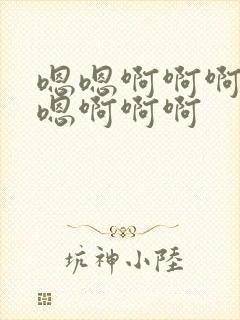 嗯嗯啊啊啊
嗯啊啊啊
坑神小陸